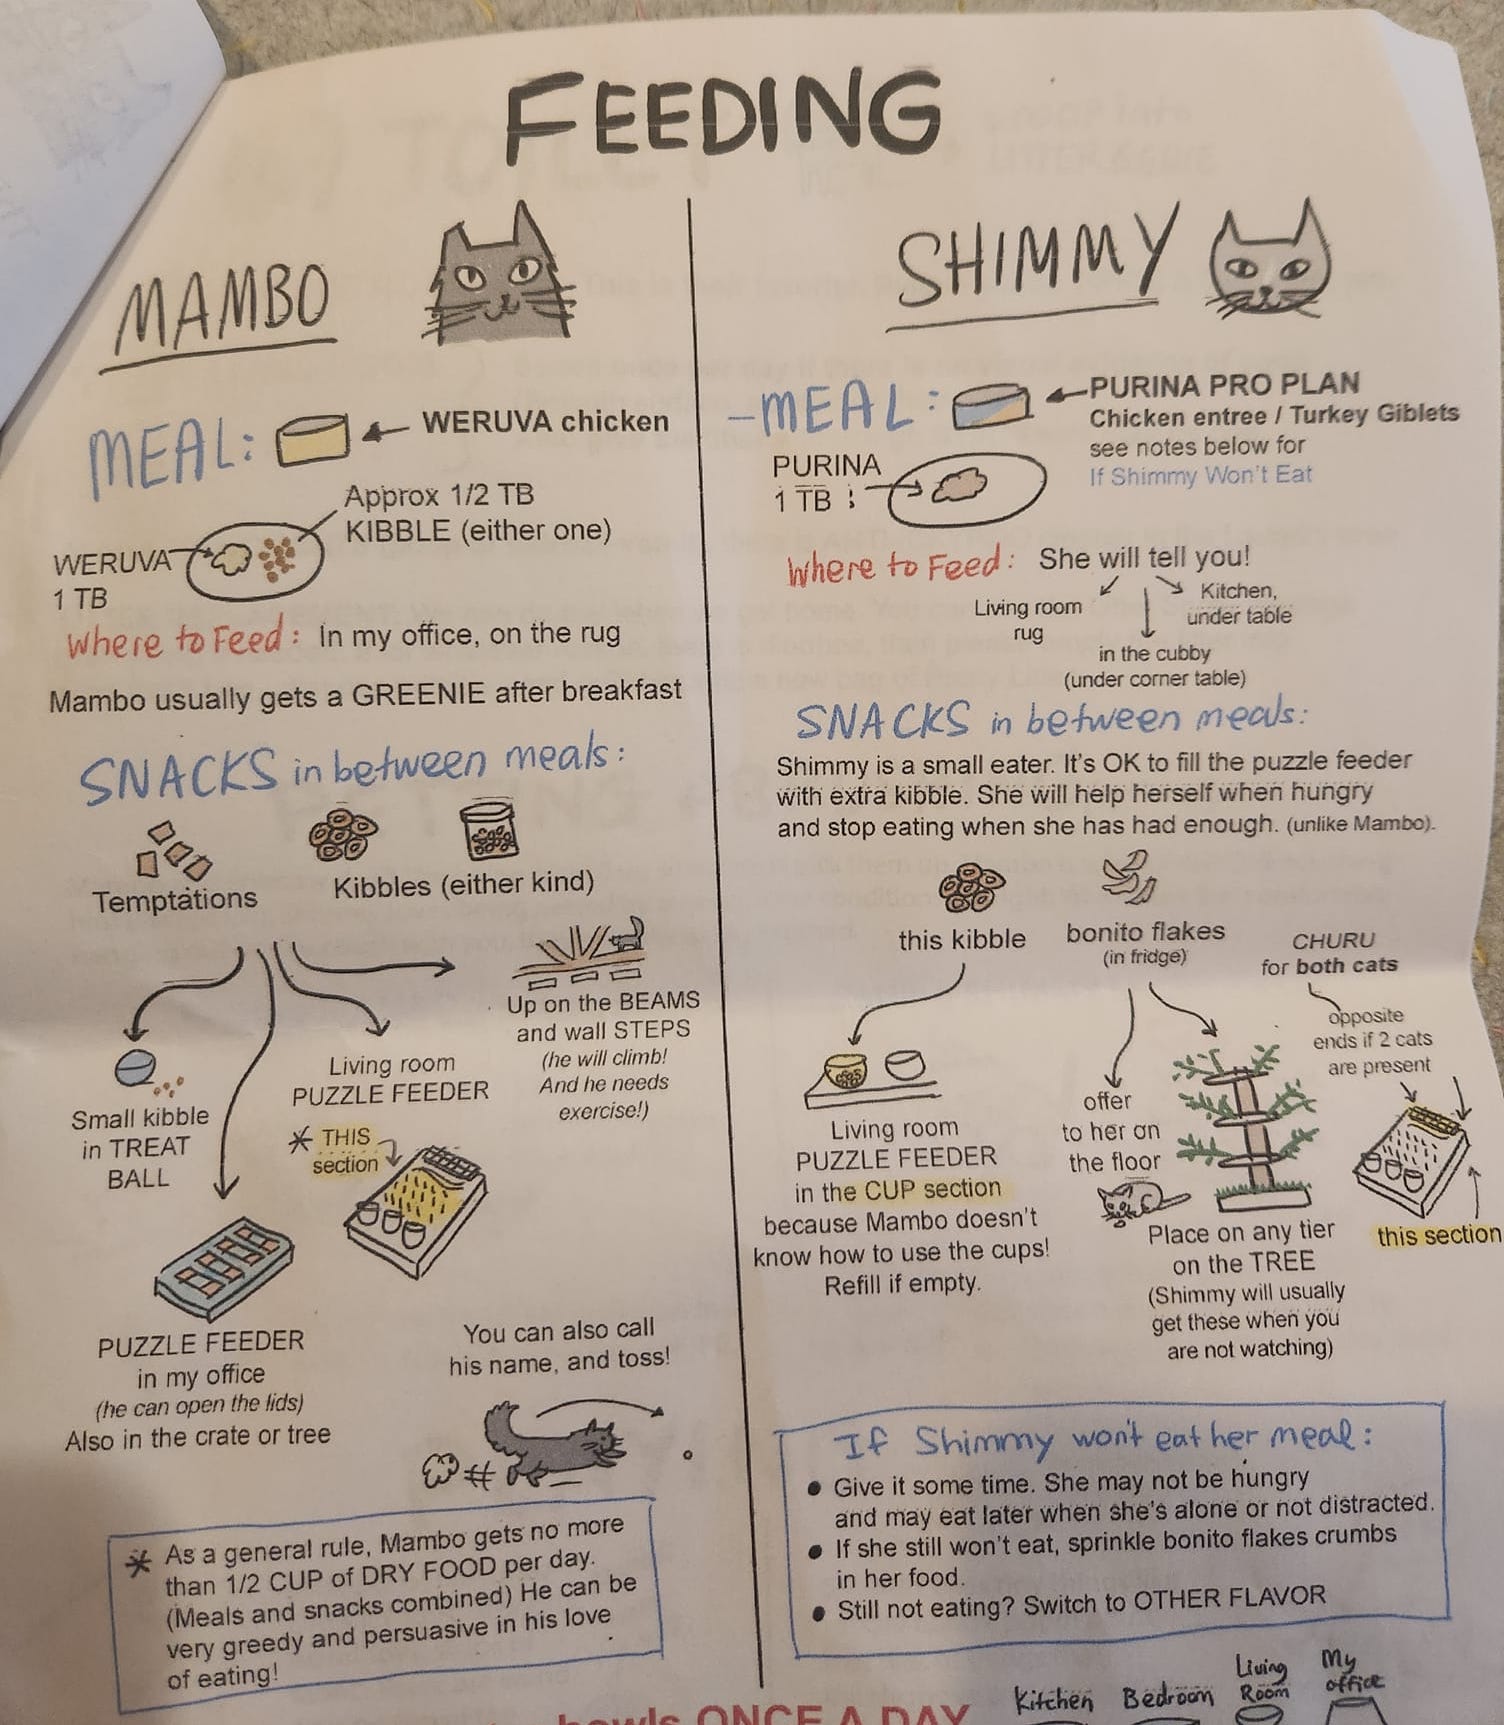 FEEDING
MAMBO
MEAL:
WERUVA chicken
Approx 1/2 TB
KIBBLE (either one)
WERUVA
1 TB
Where to Feed: In my office, on the rug
Mambo usually gets a GREENIE after breakfast
SNACKS in between meals:
Temptations
Kibbles (either kind)
Up on the BEAMS
and wall STEPS
(he will climb!
And he needs
exercise!)
Small kibble
in TREAT
BALL
Living room
PUZZLE FEEDER
* THIS
section
PUZZLE FEEDER
in my office
(he can open the lids)
Also in the crate or tree
You can also call
his name, and toss!
* As a general rule, Mambo gets no more
than 1/2 CUP of DRY FOOD per day.
(Meals and snacks combined) He can be
very greedy and persuasive in his love
of eating!
SHIMMY
-MEAL:
PURINA PRO PLAN
Chicken entree / Turkey Giblets
see notes below for
If Shimmy Won't Eat
PURINA
1 TB
Where to Feed: She will tell you!
Living room
rug
in the cubby
(under corner table)
Kitchen,
under table
SNACKS in between meals:
Shimmy is a small eater. It's OK to fill the puzzle feeder
with extra kibble. She will help herself when hungry
and stop eating when she has had enough. (unlike Mambo).
this kibble
bonito flakes
(in fridge)
CHURU
for both cats
opposite
ends if 2 cats
are present
Living room
PUZZLE FEEDER
in the CUP section
because Mambo doesn't
know how to use the cups!
Refill if empty.
offer
to her on
the floor
Place on any tier
on the TREE
(Shimmy will usually
get these when you
are not watching)
this section
If Shimmy won't eat her meal:
• Give it some time. She may not be hungry
and may eat later when she's alone or not distracted.
• If she still won't eat, sprinkle bonito flakes crumbs
in her food.
• Still not eating? Switch to OTHER FLAVOR
bowls ONCE A DAY
Kitchen
Bedroom
Living
Room
My
office